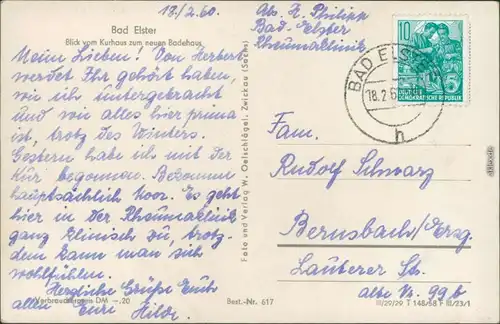 18./2.60.
Bad Elster
Blick vom Kurhaus zum neuen Badehaus
Meine Lieben! Von Herbert
werdet Ihr gehört haben,
wie ich untergebracht
und wie alles hier prima
ist, trotz des Winters.
Gestern habe ich mit der
Kur begonnen. Bekomme
hauptsächlich Moor. Es geht
hier in der Rheumaklinik
ganz klinisch zu, trotz-
dem kann man sich
wohlfühlen.
Herzliche Grüße Euch
allen Eure Hilde.
Verbraucherpreis DM -.20
Best.-Nr. 617
Foto und Verlag W. Oelschlägel, Zwickau (Sachs)
Abs. H. Philipp
Bad-Elster
Rheumaklinik
10
DEUTSCHE
DEMOKRATISCHE REPUBLIK
BAD ELSTER
18.2.6
h
Fam.
Rudolf Schwarz
Bernsbach/Erzg.
Lauterer Str.
alte Nr. 99b
III/29/29 T 148/58 F III/23/1